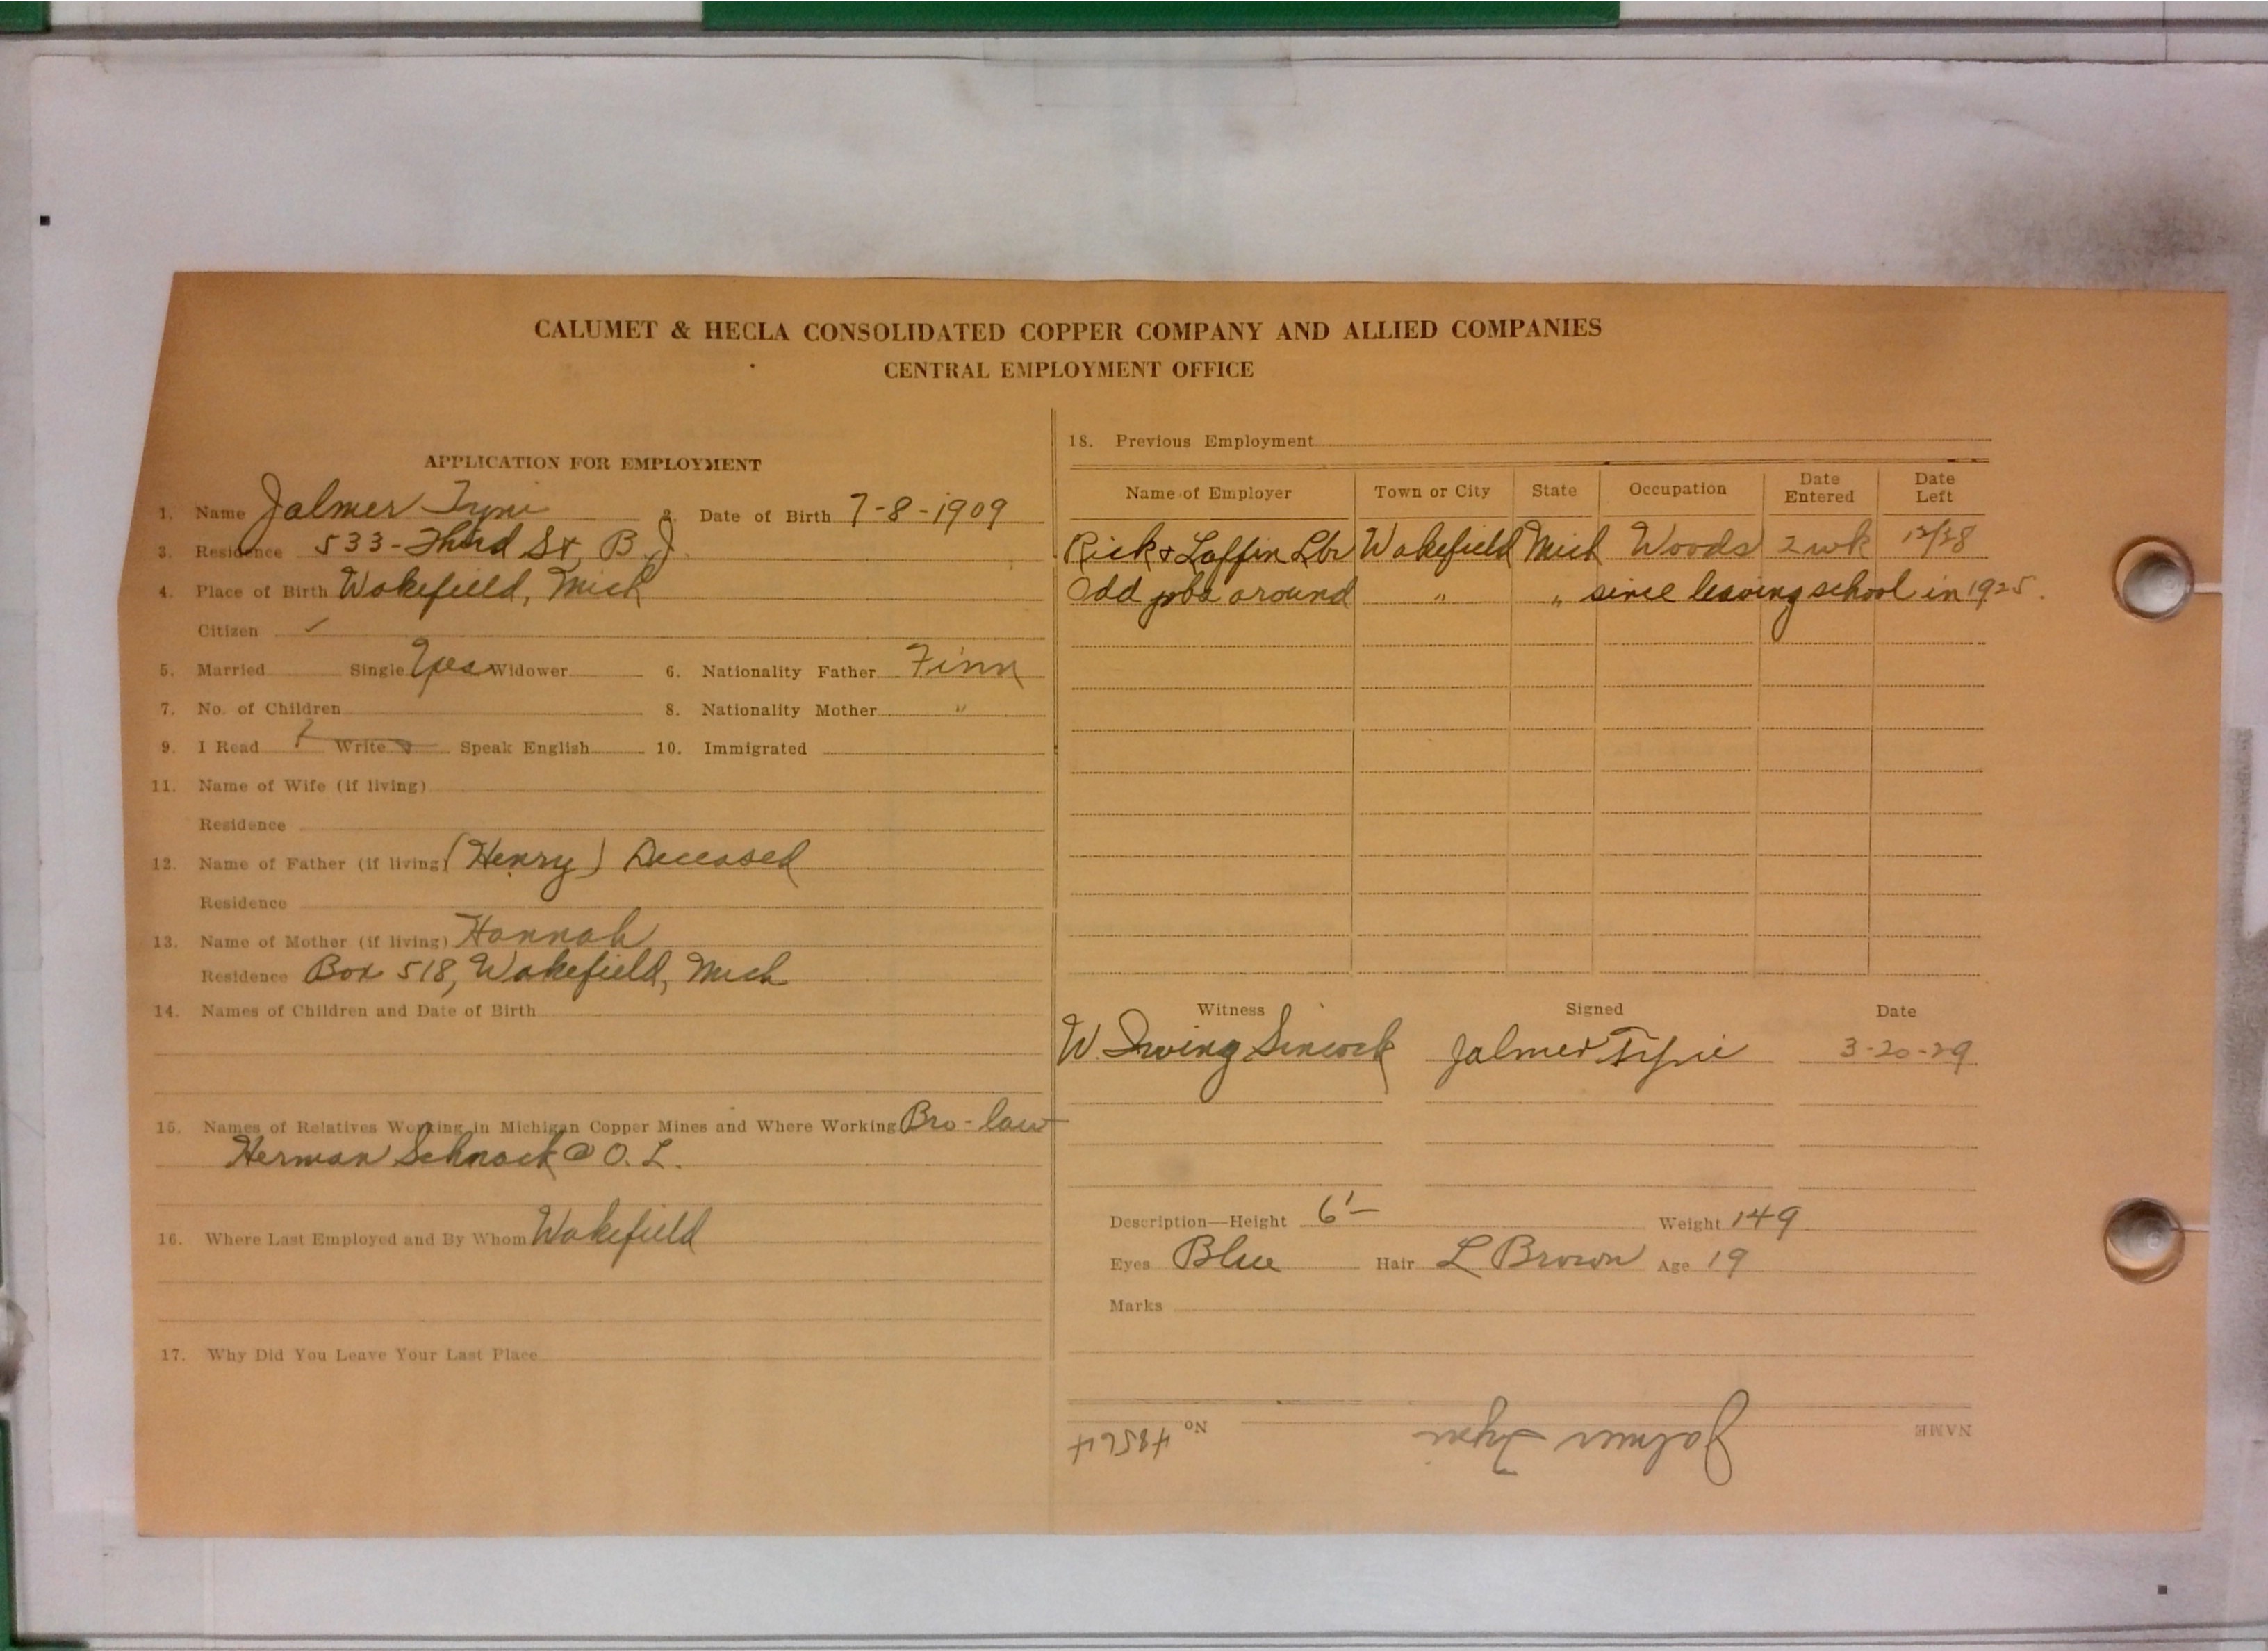 CALUMET & HECLA CONSOLIDATED COPPER COMPANY AND ALLIED COMPANIES
CENTRAL EMPLOYMENT OFFICE
APPLICATION FOR EMPLOYMENT
1. Name Jalmer Tyni 2. Date of Birth 7-8-1909
3. Residence 533-Third St, B.J.
4. Place of Birth Wakefield, Mich
Citizen ✓
5. Married Single Yes Widower 6. Nationality Father Finn
7. No. of Children 8. Nationality Mother "
9. I Read Write Speak English 10. Immigrated
11. Name of Wife (if living)
Residence
12. Name of Father (if living) (Henry) Deceased
Residence
13. Name of Mother (if living) Hannah
Residence Box 518, Wakefield, Mich
14. Names of Children and Date of Birth
15. Names of Relatives Working in Michigan Copper Mines and Where Working Bro-law
Herman Schnack @ O. L.
16. Where Last Employed and By Whom Wakefield
17. Why Did You Leave Your Last Place
18. Previous Employment
Name of Employer Town or City State Occupation Date Entered Date Left
Rick & Laffin Lbr Wakefield Mich Woods 2 wk 12/28
Odd jobs around " " since leaving school in 1925.
Witness Signed Date
W. Irving Sincock Jalmer Tyni 3-20-29
Description—Height 6'— Weight 149
Eyes Blue Hair L Brown Age 19
Marks
NAME Jalmer Tyni No 48564